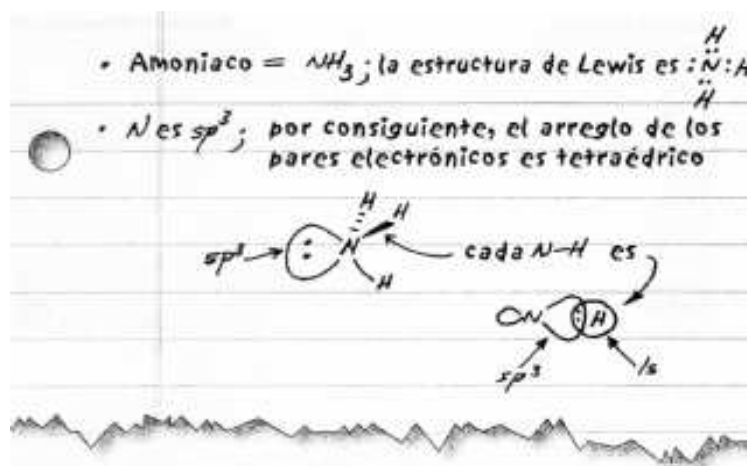 H
• Amoniaco = NH₃; la estructura de Lewis es :N:H
H
• N es sp³; por consiguiente, el arreglo de los
pares electrónicos es tetraédrico
H
H
sp³ : N
cada N-H es
H
N : H
sp³
1s